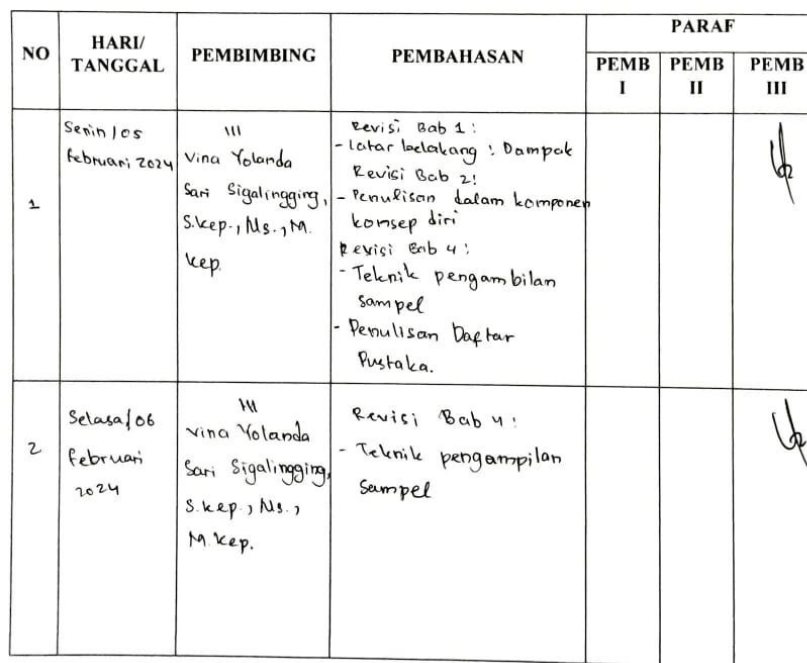 NO
HARI/
TANGGAL
PEMBIMBING
PEMBAHASAN
PARAF
PEMB
I
PEMB
II
PEMB
III
1
Senin/05
Februari 2024
III
Vina Yolanda
Sari Sigalingging,
S.kep., Ns., M.
kep.
Revisi Bab 1 :
- Latar belakang : Dampak
Revisi Bab 2:
- Penulisan dalam komponen
konsep diri
Revisi Bab 4 :
- Teknik pengambilan
sampel
- Penulisan Daftar
Pustaka.
2
Selasa/06
Februari
2024
III
Vina Yolanda
Sari Sigalingging,
S.kep., Ns.,
M.kep.
Revisi Bab 4 :
- Teknik pengampilan
sampel